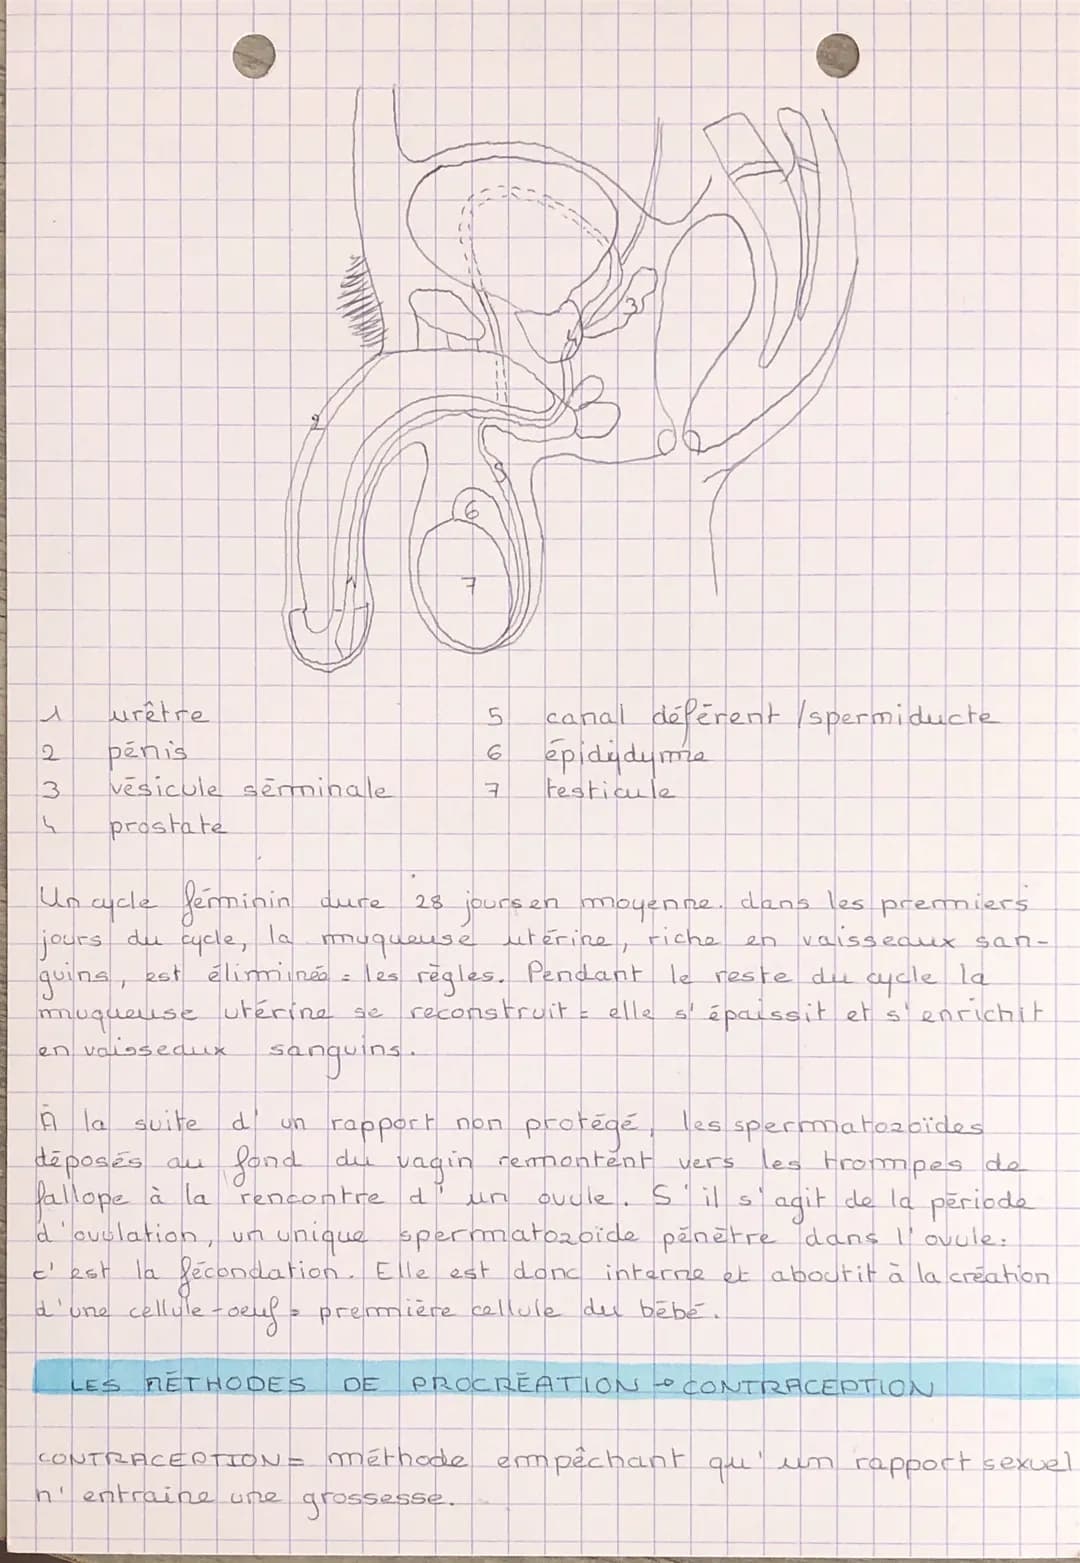 3
4
2
5
6
7
1 urêtre
2 pénis
3 vésicule séminale
4 prostate
5 canal déférent / spermiducte
6 épididyme
7 testicule
Un cycle féminin dure 28 jours en moyenne. dans les premiers
jours du cycle, la muqueuse utérine, riche en vaisseaux san-
guins, est éliminée = les règles. Pendant le reste du cycle la
muqueuse utérine se reconstruit = elle s'épaissit et s'enrichit
en vaisseaux sanguins.
À la suite d'un rapport non protégé, les spermatozoïdes
déposés au fond du vagin remontent vers les trompes de
fallope à la rencontre d'un ovule. S'il s'agit de la période
d'ovulation, un unique spermatozoïde pénètre dans l'ovule:
c'est la fécondation. Elle est donc interne et aboutit à la création
d'une cellule-oeuf = première cellule du bébé.
LES MÉTHODES DE PROCRÉATION → CONTRACEPTION
CONTRACEPTION = méthode empêchant qu'un rapport sexuel
n'entraine une grossesse.